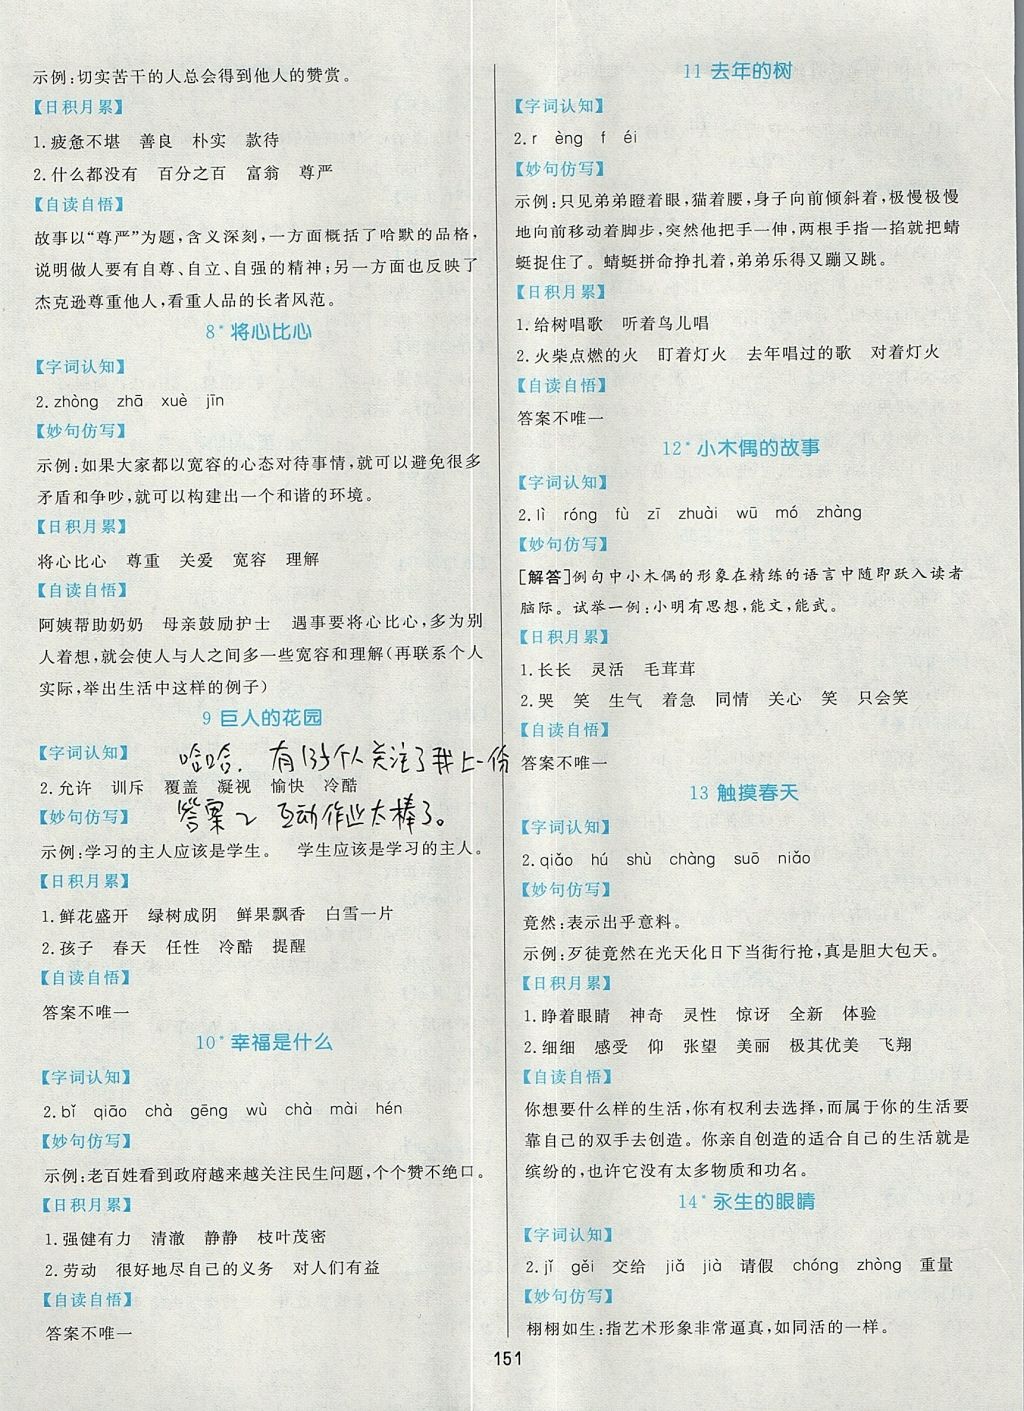 示例:切实苦干的人总会得到他人的赞赏。
【日积月累】
1.疲惫不堪 善良 朴实 款待
2.什么都没有 百分之百 富翁 尊严
【自读自悟】
故事以“尊严”为题,含义深刻,一方面概括了哈默的品格,
说明做人要有自尊、自立、自强的精神;另一方面也反映了
杰克逊尊重他人,看重人品的长者风范。
8* 将心比心
【字词认知】
2.zhòng zhā xuè jīn
【妙句仿写】
示例:如果大家都以宽容的心态对待事情,就可以避免很多
矛盾和争吵,就可以构建出一个和谐的环境。
【日积月累】
将心比心 尊重 关爱 宽容 理解
【自读自悟】
阿姨帮助奶奶 母亲鼓励护士 遇事要将心比心,多为别
人着想,就会使人与人之间多一些宽容和理解(再联系个人
实际,举出生活中这样的例子)
9 巨人的花园
【字词认知】
哈哈. 有135个人关注了我上一份
2.允许 训斥 覆盖 凝视 愉快 冷酷
【妙句仿写】
答案 互动作业太棒了。
示例:学习的主人应该是学生。 学生应该是学习的主人。
【日积月累】
1.鲜花盛开 绿树成阴 鲜果飘香 白雪一片
2.孩子 春天 任性 冷酷 提醒
【自读自悟】
答案不唯一
10* 幸福是什么
【字词认知】
2.bǐ qiāo chà gēng wù chà mài hén
【妙句仿写】
示例:老百姓看到政府越来越关注民生问题,个个赞不绝口。
【日积月累】
1.强健有力 清澈 静静 枝叶茂密
2.劳动 很好地尽自己的义务 对人们有益
【自读自悟】
答案不唯一
11 去年的树
【字词认知】
2.r èng f éi
【妙句仿写】
示例:只见弟弟瞪着眼,猫着腰,身子向前倾斜着,极慢极慢
地向前移动着脚步,突然他把手一伸,两根手指一掐就把蜻
蜓捉住了。蜻蜓拼命挣扎着,弟弟乐得又蹦又跳。
【日积月累】
1.给树唱歌 听着鸟儿唱
2.火柴点燃的火 盯着灯火 去年唱过的歌 对着灯火
【自读自悟】
答案不唯一
12* 小木偶的故事
【字词认知】
2.lì róng fù zī zhuài wū mó zhàng
【妙句仿写】
[解答]例句中小木偶的形象在精练的语言中随即跃入读者
脑际。试举一例:小明有思想,能文,能武。
【日积月累】
1.长长 灵活 毛茸茸
2.哭 笑 生气 着急 同情 关心 笑 只会笑
【自读自悟】
答案不唯一
13 触摸春天
【字词认知】
2.qiǎo hú shù chàng suō niǎo
【妙句仿写】
竟然:表示出乎意料。
示例:歹徒竟然在光天化日下当街行抢,真是胆大包天。
【日积月累】
1.睁着眼睛 神奇 灵性 惊讶 全新 体验
2.细细 感受 仰 张望 美丽 极其优美 飞翔
【自读自悟】
你想要什么样的生活,你有权利去选择,而属于你的生活要
靠自己的双手去创造。你亲自创造的适合自己的生活就是
缤纷的,也许它没有太多物质和功名。
14* 永生的眼睛
【字词认知】
2.jǐ gěi 交给 jiǎ jià 请假 chóng zhòng 重量
【妙句仿写】
栩栩如生:指艺术形象非常逼真,如同活的一样。
151